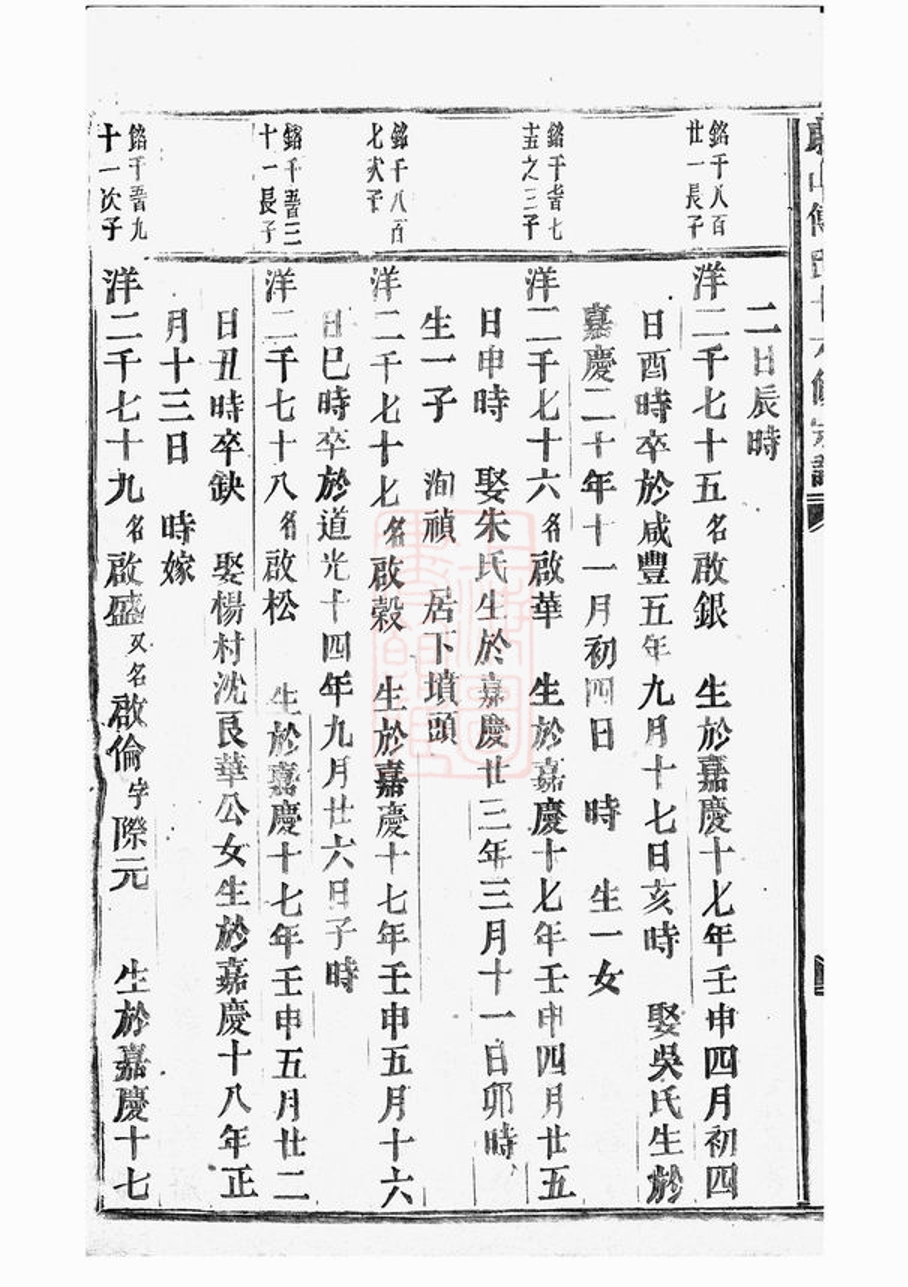 二日辰時
銘千八百
廿一長子
洋二千七十五名啟銀 生於嘉慶十七年壬申四月初四
日酉時卒於咸豐五年九月十七日亥時 娶吳氏生於
嘉慶二十年十一月初四日 時 生一女
銘千七
之三子
洋二千七十六名啟華 生於嘉慶十七年壬申四月廿五
日申時 娶朱氏生於嘉慶廿三年三月十一日卯時
生一子 洵禎 居下墳頭
銘千八百
七次子
洋二千七十七名啟榖 生於嘉慶十七年壬申五月十六
日巳時卒於道光十四年九月廿六日子時
銘千三
十一長子
洋二千七十八名啟松 生於嘉慶十七年壬申五月廿二
日丑時卒缺 娶楊村沈良華公女生於嘉慶十八年正
月十三日 時嫁
銘千九
十一次子
洋二千七十九名啟盛又名啟倫字際元 生於嘉慶十七